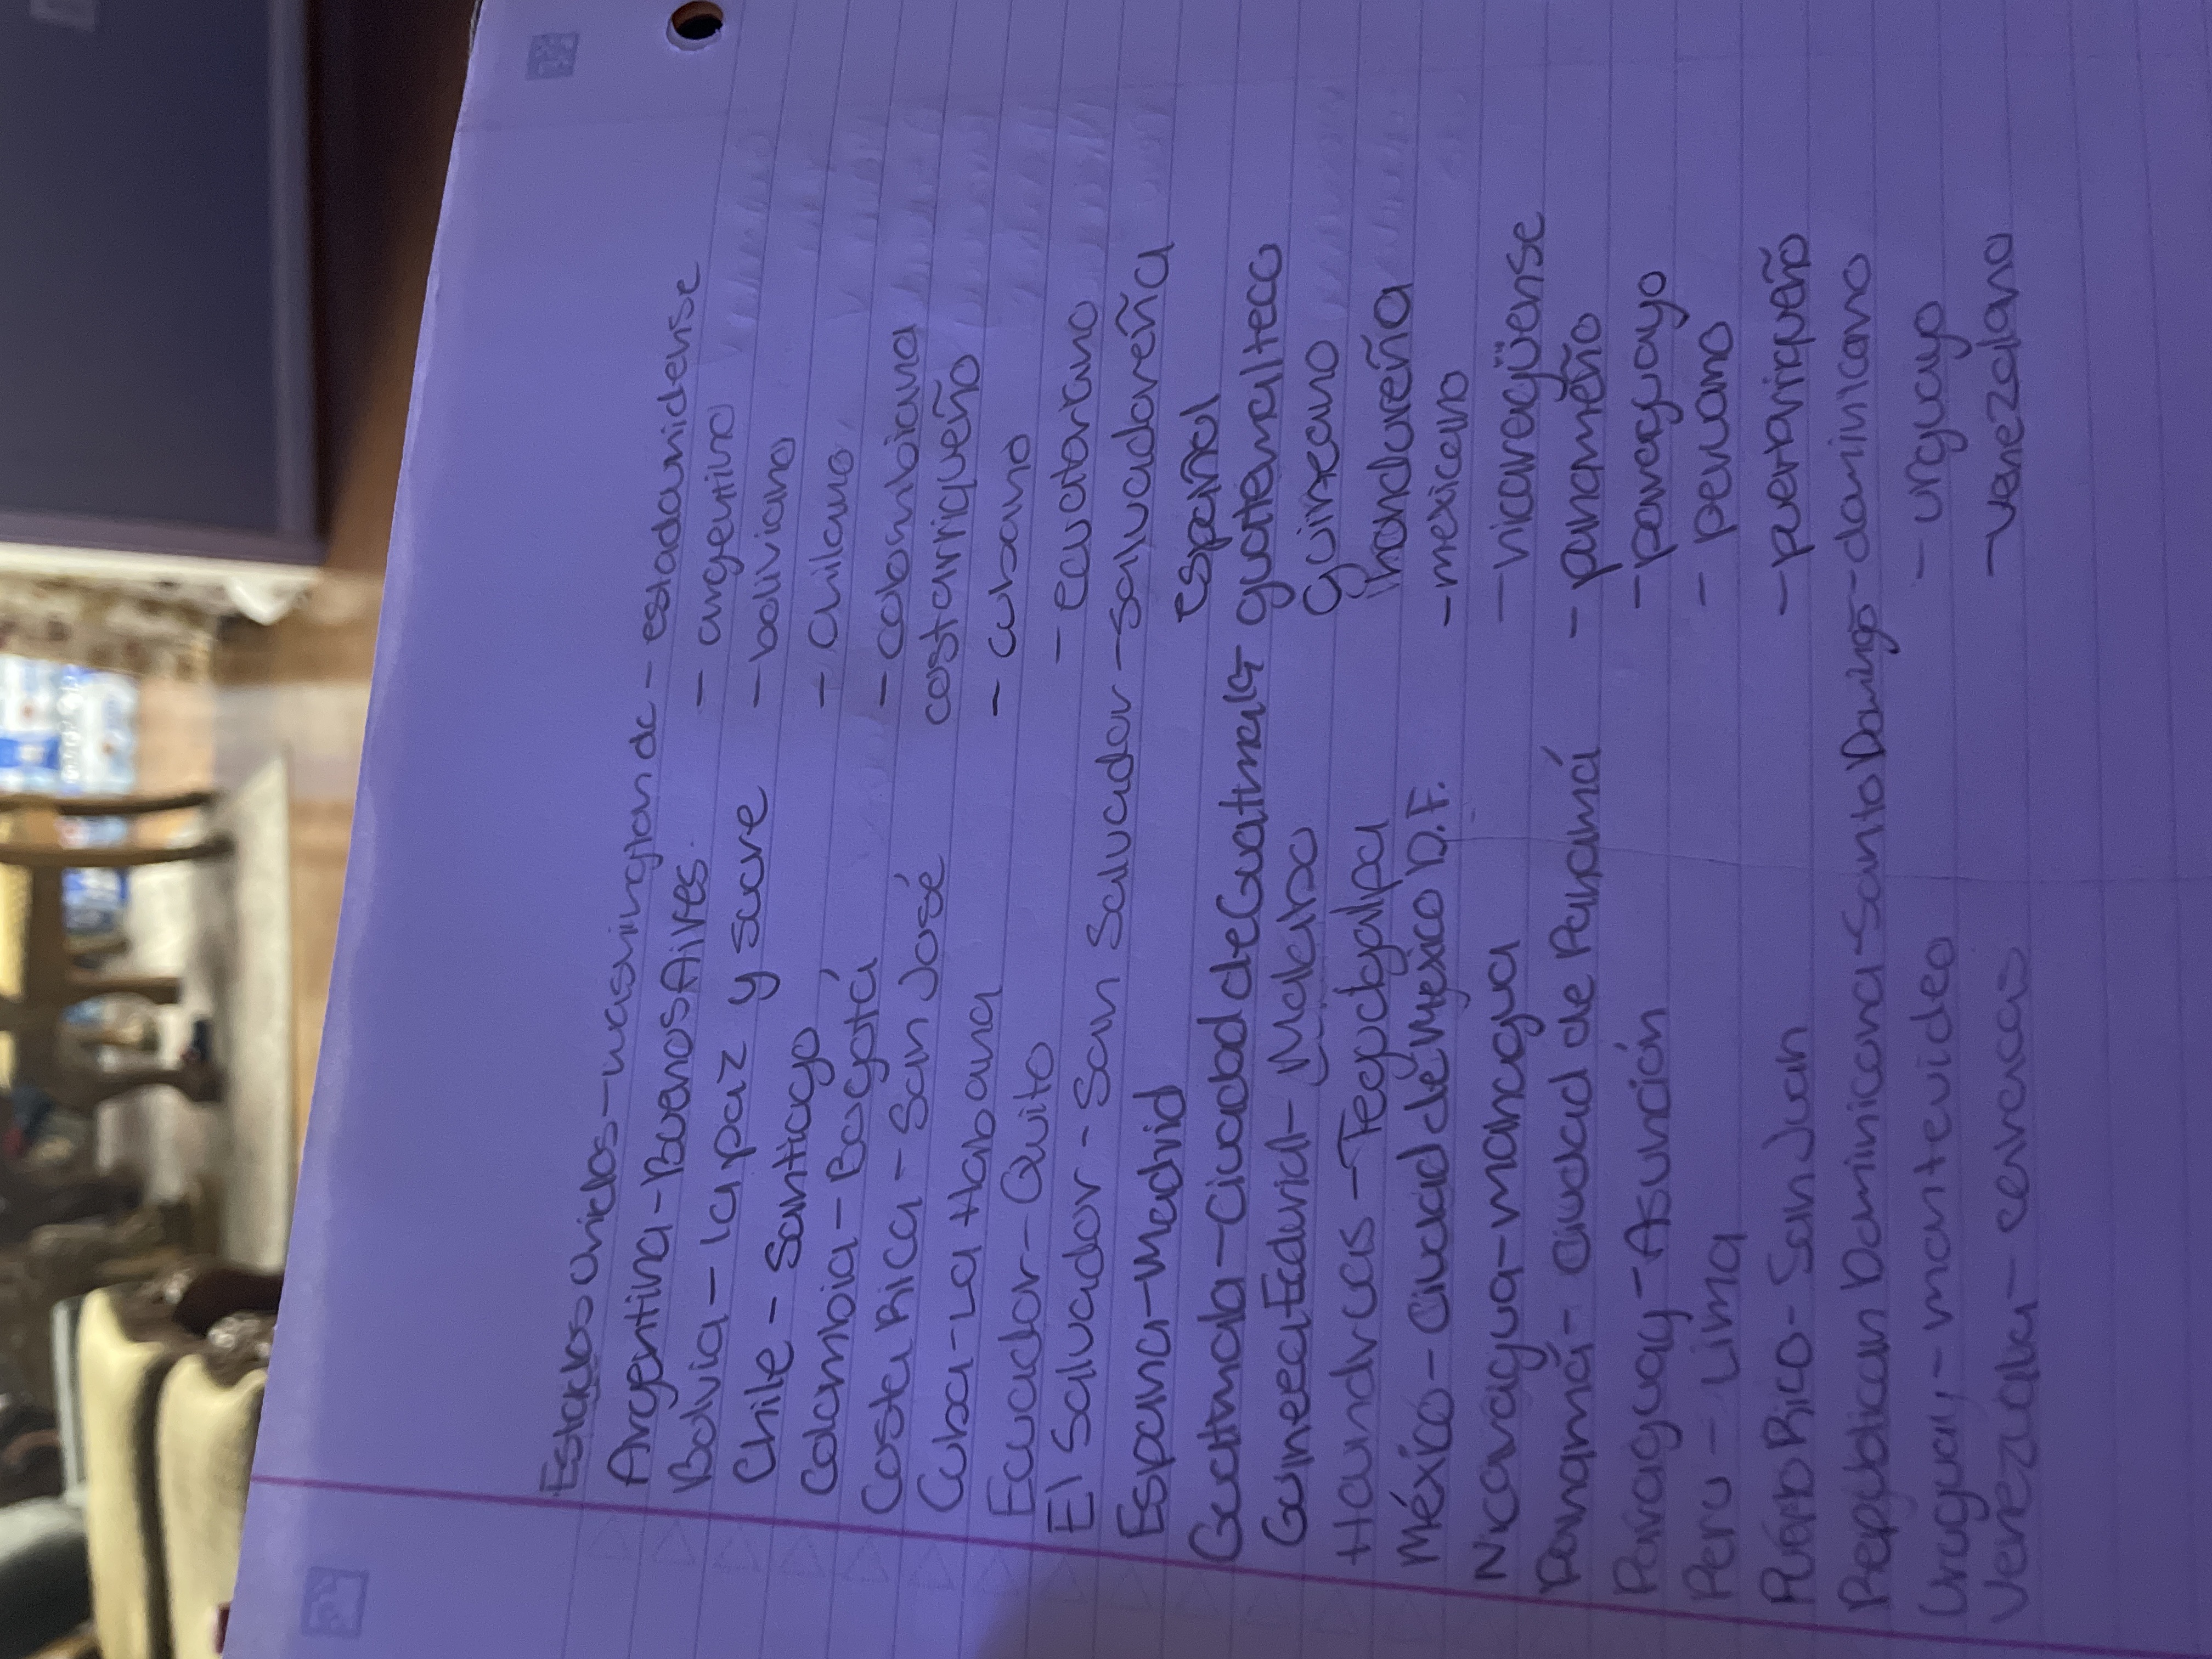 Estados unidos - washington dc - estadounidense
Argentina - Buenos Aires - argentino
Bolvia - la paz y sucre - boliviano
Chile - Santiago - Chilano
Colombia - Bogotá - colombiana
Costa Rica - San José costarriqueño
Cuba - La Habana - cubano
Ecuador - Quito - ecuatoriano
El Salvador - San Salvador - Salvadoreña
Espana - Madrid español
Ciudad de Guatmala guatemalteco
Malabo guineano
Hondruas - Tegucigalpa hondureña
México - Ciudad de México D.F. - mexicano
Nicaragua - managua - nicaragüense
Panamá - Ciudad de Panamá - panameño
Paraguay - Asunción - paraguayo
Peru - Lima - peruano
Puerto Rico - San Juan - puertoriqueño
Republican Dominicana - Santo Domingo - dominicano
Uruguay - montevideo - uruguayo
Venezuala - caracas - venezolano